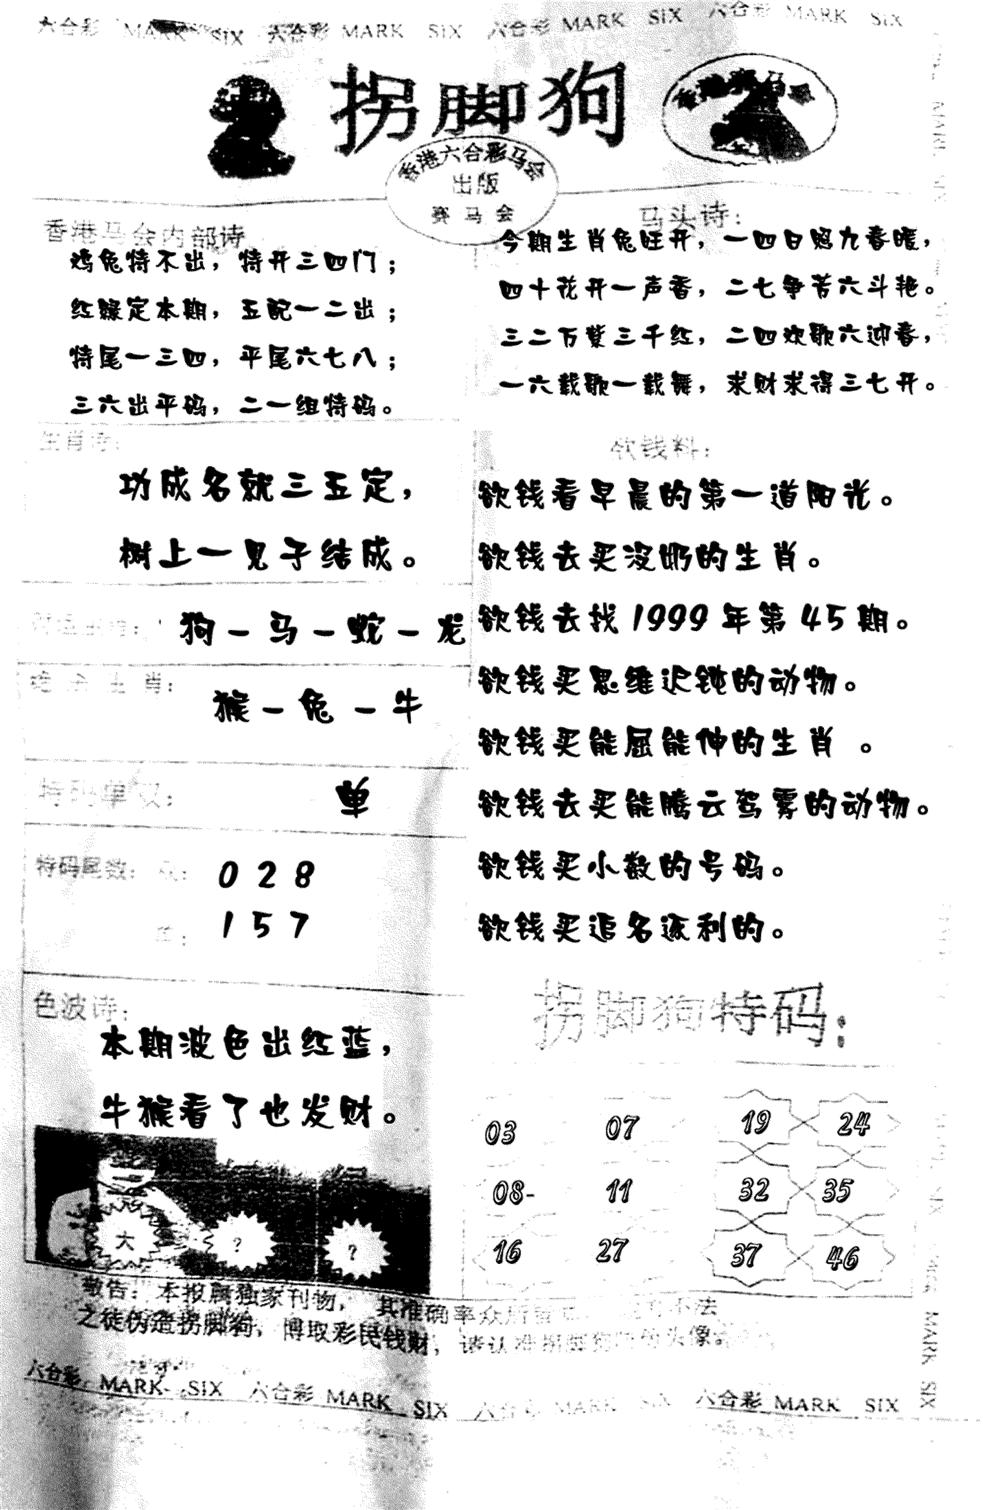 六合彩 MARK SIX 六合彩 MARK SIX 六合彩 MARK SIX 六合彩 MARK SIX
拐脚狗
香港赛马会
香港六合彩马会
出版
赛马会
香港马会内部诗
鸡兔特不出，特开三四门；
红绿定本期，五配一二出；
特尾一三四，平尾六七八；
三六出平码，二一组特码。
马头诗：
今期生肖兔旺开，一四日照九春暖，
四十花开一声香，二七争苦六斗艳。
三二万紫三千红，二四欢歌六迎春，
一六载歌一载舞，求财求得三七开。
生肖诗：
功成名就三五定，
树上一见子结成。
狗－马－蛇－龙
绝杀生肖：
猴－兔－牛
特码单双：
单
特码尾数：双：
028
单：
157
色波诗：
本期波色出红蓝，
牛猴看了也发财。
大
?
?
欲钱料：
欲钱看早晨的第一道阳光。
欲钱去买没奶的生肖。
欲钱去找1999年第45期。
欲钱买思维迟钝的动物。
欲钱买能屈能伸的生肖 。
欲钱去买能腾云驾雾的动物。
欲钱买小数的号码。
欲钱买追名逐利的。
拐脚狗特码：
03 07 19 24
08- 11 32 35
16 27 37 46
敬告：本报属独家刊物，其准确率众所皆 不法
之徒伪造拐脚狗，博取彩民钱财，请认准拐脚狗 头像
六合彩 MARK SIX 六合彩 MARK SIX 六合彩 MARK SIX 六合彩 MARK SIX
MARK SIX